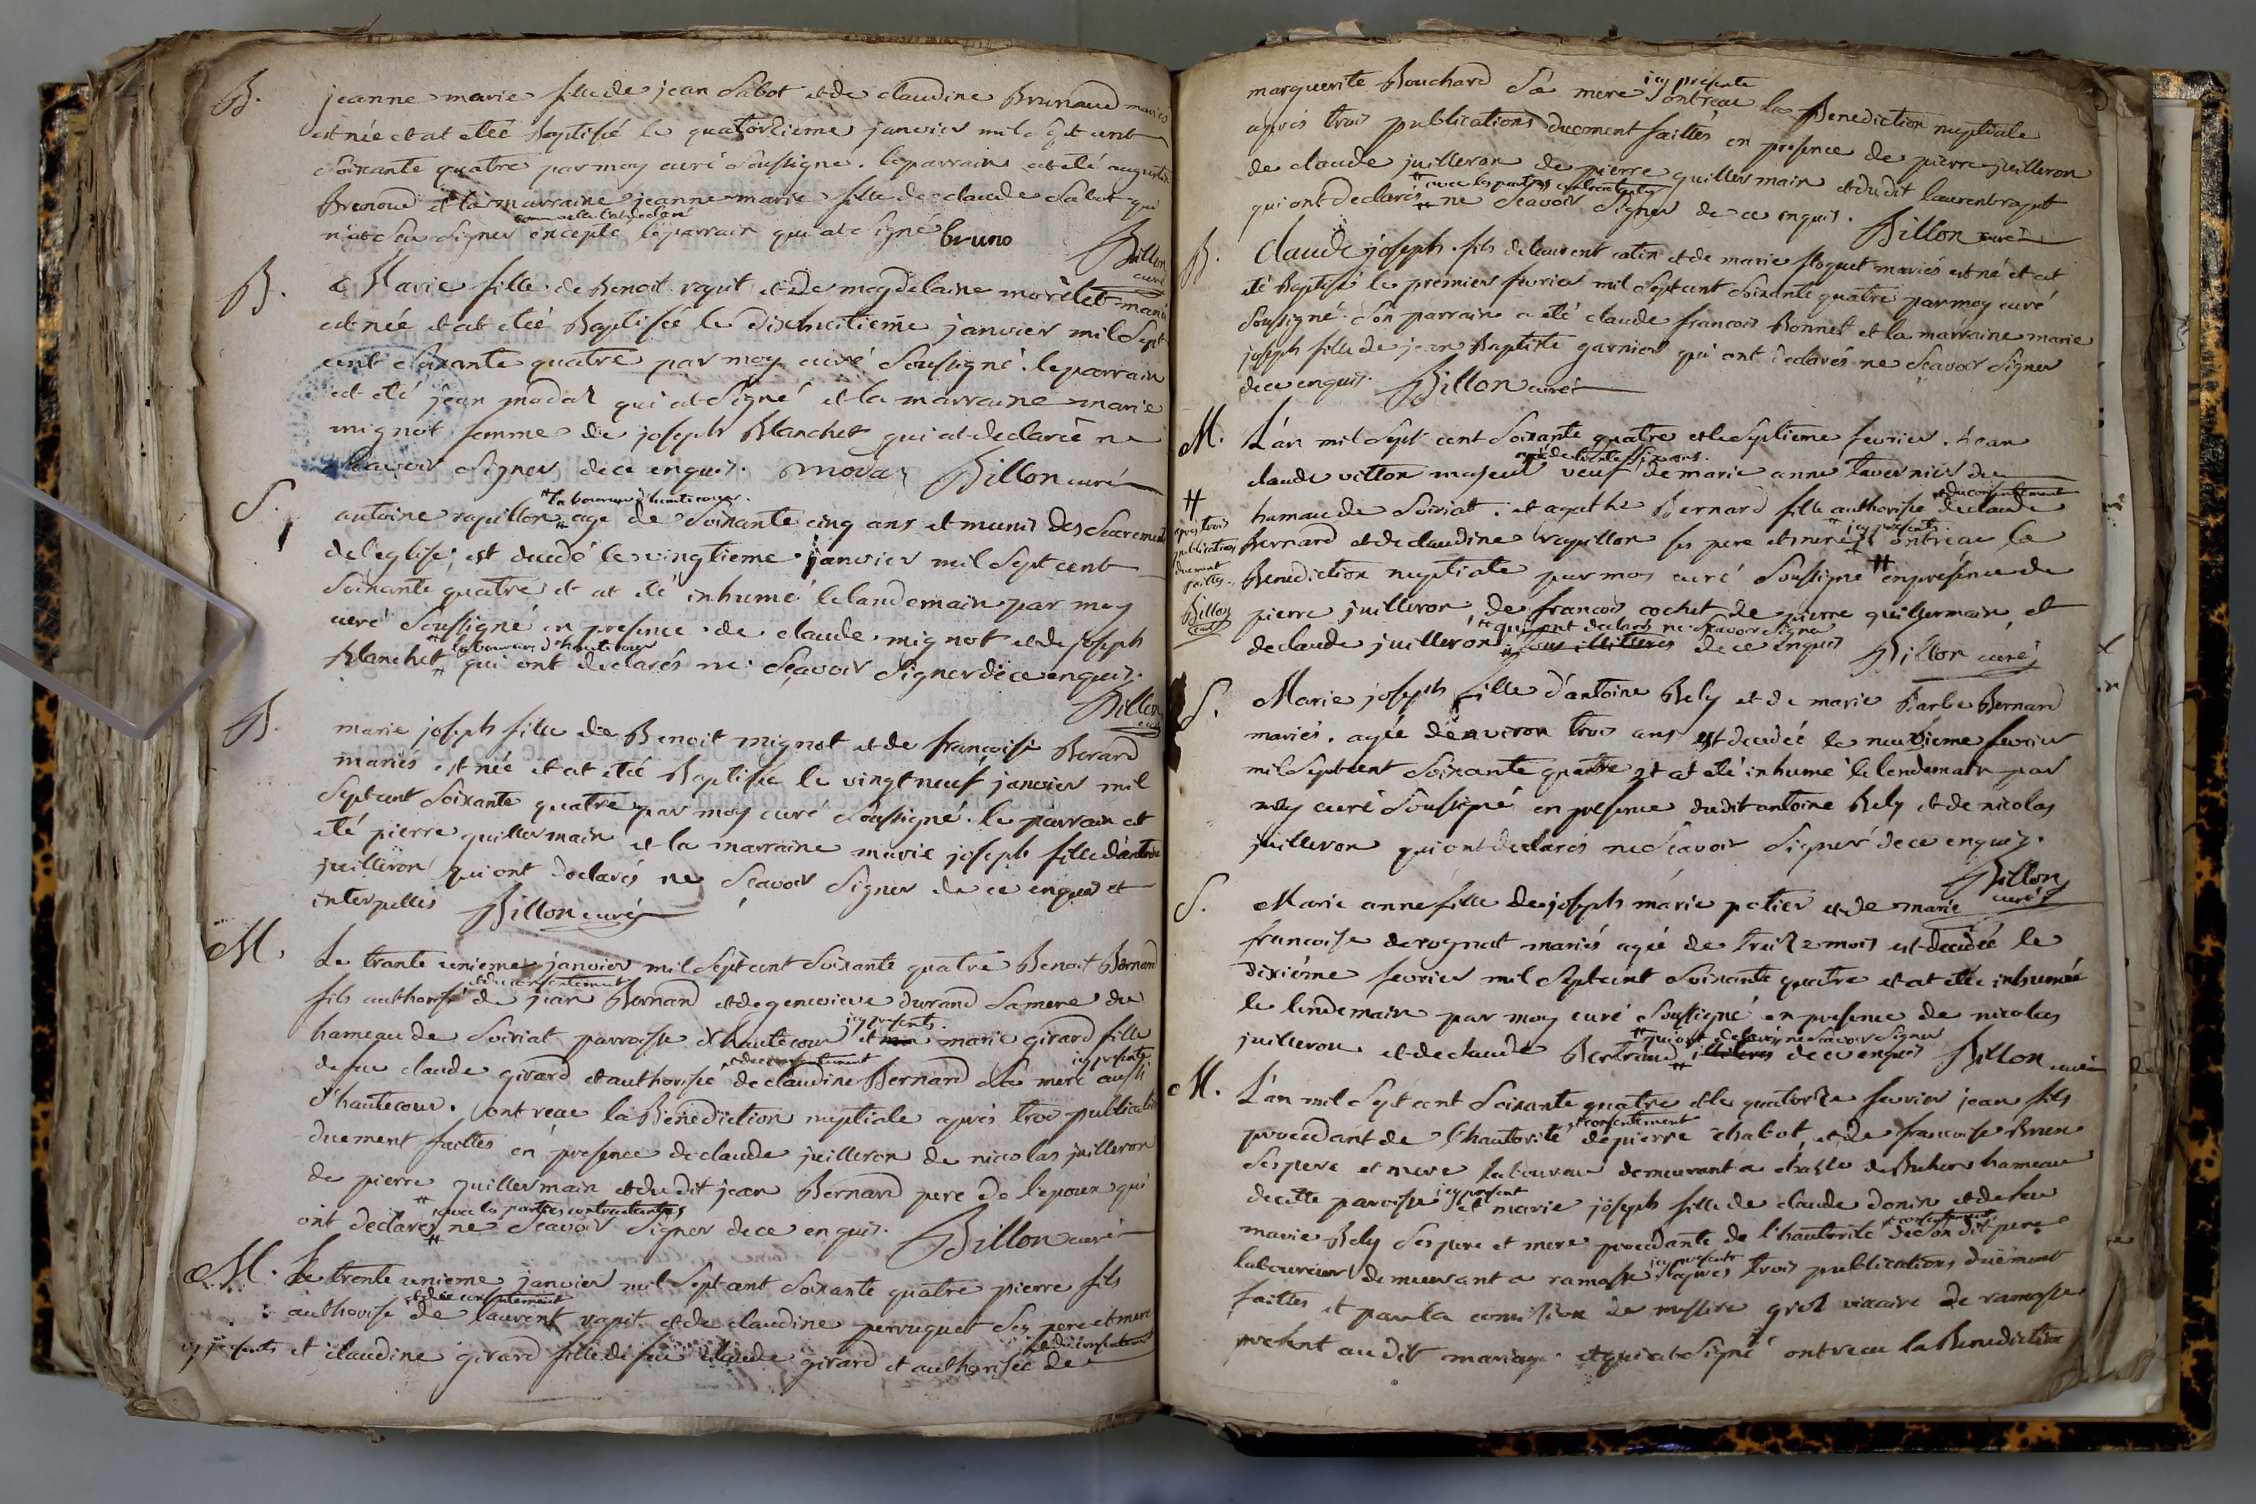 B. jeanne marie fille de jean Sabot et de claudine Brunaud mariés
est née et at etéé Baptisée le quatorzieme janvier mil sept cent
soixante quatre par moy curé soussigné. le parrain at eté augustin
Brenoud et la marraine jeanne marie fille de claude Sabot qui
n'at sçu signer excepté le parrain qui at signé bruno Billon
curé
B. Marie fille de Benoit rapit et de magdelaine morelet mariés
est née et at etéé Baptisée le dixhuitieme janvier mil sept
cent soixante quatre par moy curé soussigné. le parrain
at eté jean modaz qui at signé et la marraine marie
mignot femme de joseph Blanchet qui at declarée ne
sçavoir signer de ce enquis. modaz Billon curé
# laboureur d'hautecour
S. antoine rapillon # agé de soixante cinq ans et munis des sacrements
de l'eglise, est decedé le vingtieme janvier mil sept cent
soixante quatre et at eté inhumé le landemain par moy
curé soussigné en presence de claude mignot et de joseph
# laboureurs d'hautecour
Blanchet # qui ont declarés ne sçavoir signer de ce enquis.
Billon
curé
B. marie joseph fille de Benoit mignot et de francoise Berard
mariés est née et at etéé Baptisée le vingt neuf janvier mil
sept cent soixante quatre par moy curé soussigné. le parrain at
eté pierre guillermain et la marraine marie joseph fille d'antoine
juilleron qui ont declarés ne sçavoir signer de ce enquis et
interpellés Billon curé
M. Le trante unieme janvier mil sept cent soixante quatre Benoit Bernard
et du consentement
fils authorisé de jean Bernard et de genevieve durand sa mere du
icy presents
hameau de Soiriat parroisse d'hautecour et marie girard fille
et du consentement icy presente
de feu claude girard et authorisée de claudine Bernard sa mere aussi
d'hautecour. ont receu la Benediction nuptiale après trois publications
duement faittes en presence de claude juilleron de nicolas juilleron
de pierre guillermain et du dit jean Bernard pere de l'epoux qui
# avec les parties contractantes
ont declarés # ne sçavoir signer de ce enquis. Billon curé
M. Le trente unieme janvier mil sept cent soixante quatre pierre fils
et du consentement
authorisé de laurent rapit et de claudine perruquet ses pere et mere
et du consentement
icy presents et claudine girard fille de feu claude girard et authorisée de
icy presente
marguerite Bouchard sa mere ont receu la Benediction nuptiale
après trois publications duement faittes en presence de pierre juilleron
de claude juilleron de pierre guillermain et du dit laurent rapit
# avec les parties contractantes
qui ont declarés # ne sçavoir signer de ce enquis. Billon curé
B. Claude joseph fils de laurent cotin et de marie floquet mariés est né et at
eté Baptisé le premier fevrier mil sept cent soixante quatre par moy curé
soussigné. son parrain a eté claude francois Bonnet et la marraine marie
joseph fille de jean Baptiste garnier qui ont declarés ne sçavoir signer
de ce enquis. Billon curé
M. L'an mil sept cent soixante quatre et le septieme fevrier. jean
agé de trente six ans
claude vitton majeur veuf de marie anne tavernier de
et du consentement
hameau de Soiriat. et agathe Bernard fille authorisée de claude
icy presents
Bernard et de claudine rapillon ses pere et mere ont receu la
Benediction nuptiale par moy curé soussigné # en présence de
# après trois
publications
duement
faittes
Billon
curé
pierre juilleron, de francois cochet de pierre guillermain, et
# qui ont declarés ne sçavoir signer
de claude juilleron # tous illitteres de ce enquis Billon curé
S. Marie joseph fille d'antoine Bely et de marie Barbe Bernard
mariés. agée d'environ trois ans est decedée le neuvieme fevrier
mil sept cent soixante quatre et at eté inhumé le lendemain par
moy curé soussigné en presence du dit antoine Bely et de nicolas
juilleron qui ont declarés ne sçavoir signer de ce enquis.
Billon
curé
S. Marie anne fille de joseph marie potier et de marie
francoise derognat mariés agée de treize mois est decedée le
dixiéme fevrier mil sept cent soixante quatre et at etée inhumée
le lendemain par moy curé soussigné en presence de nicolas
# qui ont declarés ne sçavoir signer
juilleron et de claude Bertrand # illiteres de ce enquis Billon curé
M. L'an mil sept cent soixante quatre et le quatorze fevrier jean fils
et consentement
procedant de l'hautorité de pierre chabot et de francoise Brun
ses pere et mere laboureur demeurant a chasle de Buhers hameau
icy present
de cette paroisse et marie joseph fille de claude donin et de feu
et consentement
marie Bely ses pere et mere procedante de l'hautorité de son dit pere
icy present
laboureur demeurant a ramasse. après trois publications duëment
faittes et par la comission de messire groz vicaire de ramasse
présent au dit mariage et qui at signé ont receu la Benediction